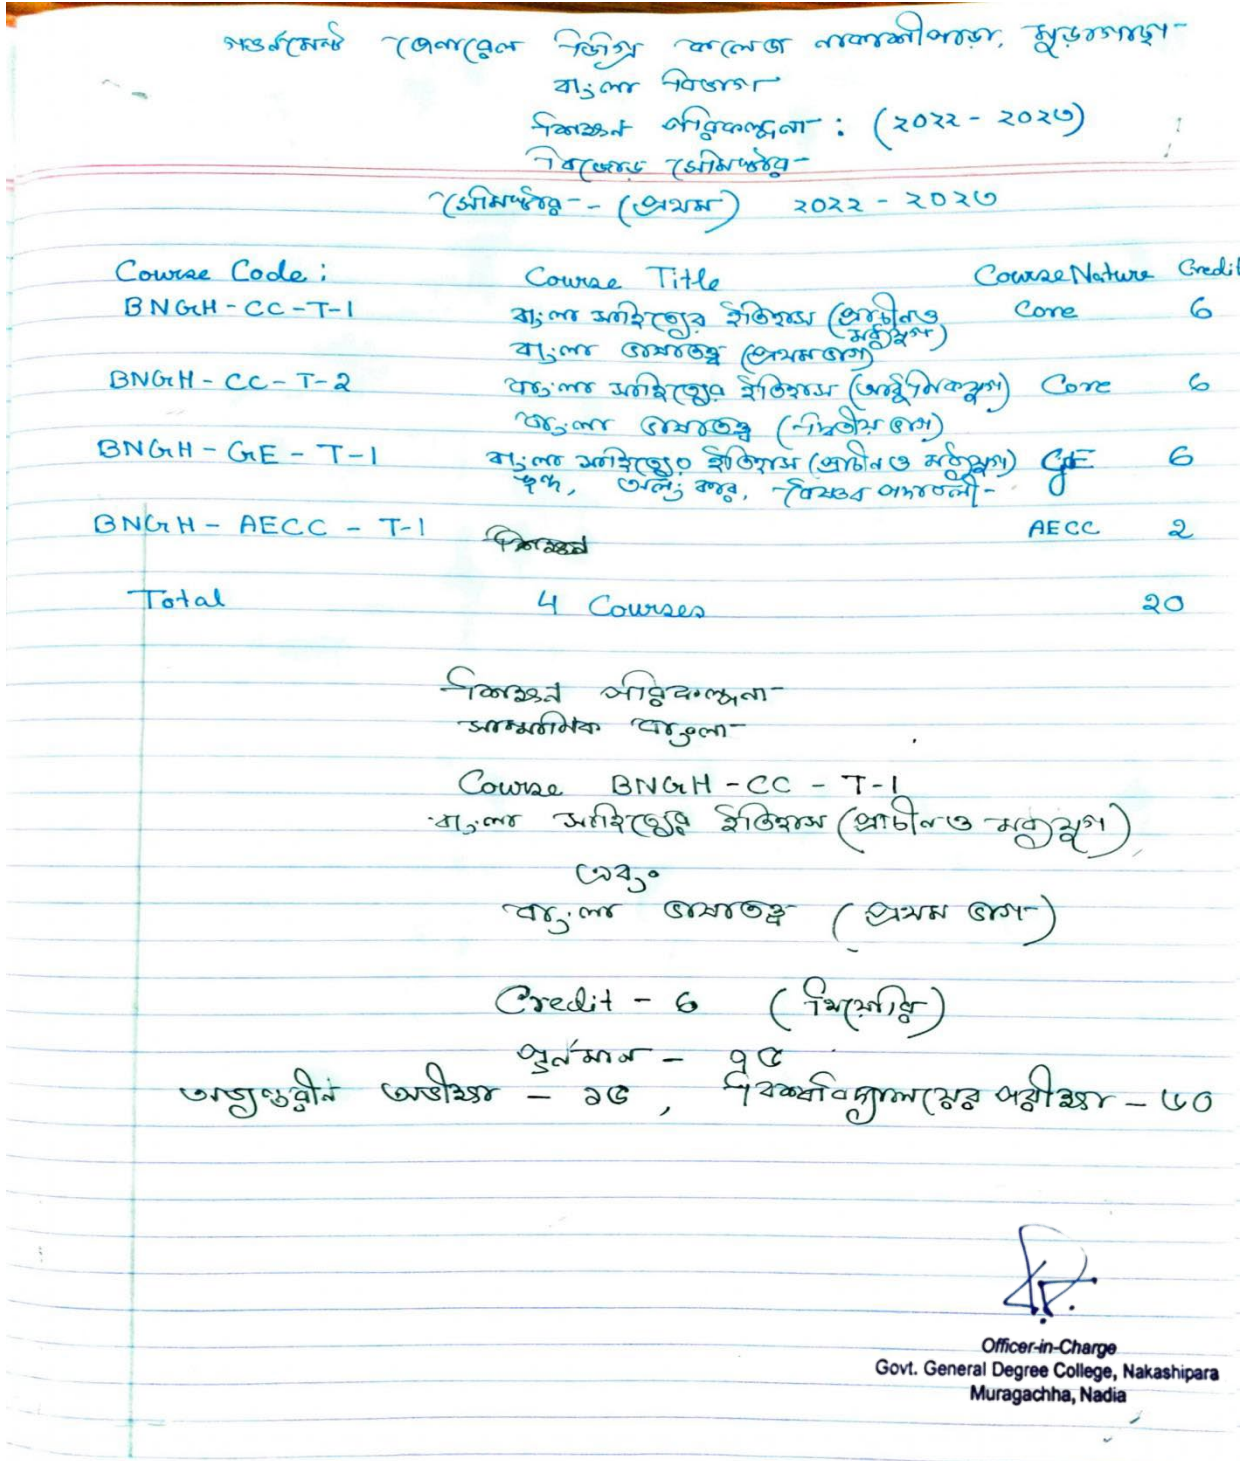 গভর্নমেন্ট জেনারেল ডিগ্রি কলেজ নাকাশীপাড়া, মুড়াগাছা
বাংলা বিভাগ
শিক্ষন পরিকল্পনা : (২০২২ - ২০২৩)
বিজোড় সেমিস্টার
সেমিস্টার - (প্রথম) ২০২২ - ২০২৩
Course Code : Course Title Course Nature Credit
BNGH - CC - T - 1 বাংলা সাহিত্যের ইতিহাস (প্রাচীন ও মধ্যযুগ) Core 6
বাংলা ভাষাতত্ত্ব (প্রথম ভাগ)
BNGH - CC - T - 2 বাংলা সাহিত্যের ইতিহাস (আধুনিক যুগ) Core 6
বাংলা ভাষাতত্ত্ব (দ্বিতীয় ভাগ)
BNGH - GE - T - 1 বাংলা সাহিত্যের ইতিহাস (প্রাচীন ও মধ্যযুগ) GE 6
ছন্দ, অলংকার, বৈষ্ণব পদাবলী
BNGH - AECC - T - 1 AECC 2
Total 4 Courses 20
শিক্ষন পরিকল্পনা
সাম্মানিক বাংলা
Course BNGH - CC - T - 1
বাংলা সাহিত্যের ইতিহাস (প্রাচীন ও মধ্যযুগ)
এবং
বাংলা ভাষাতত্ত্ব (প্রথম ভাগ)
Credit - 6 (থিয়োরি)
পূর্নমান - ৭৫
অভ্যন্তরীন অভীক্ষা - ১৫, বিশ্ববিদ্যালয়ের পরীক্ষা - ৬০
Officer-in-Charge
Govt. General Degree College, Nakashipara
Muragachha, Nadia